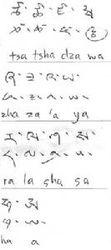 ཙ་ ཚ་ ཛ་ ཝ
ཙ་ ཚ་ ཛ་ ཝ
tsa tsha dza wa
ཞ་ ཟ་ འ་ ཡ
ཞ་ ཟ་ འ་ ཡ
zha za 'a ya
ར་ ལ་ ཤ་ ས
ར་ ལ་ ཤ་ ས
ra la sha sa
ཧ་ ཨ
ཧ་ ཨ
ha a